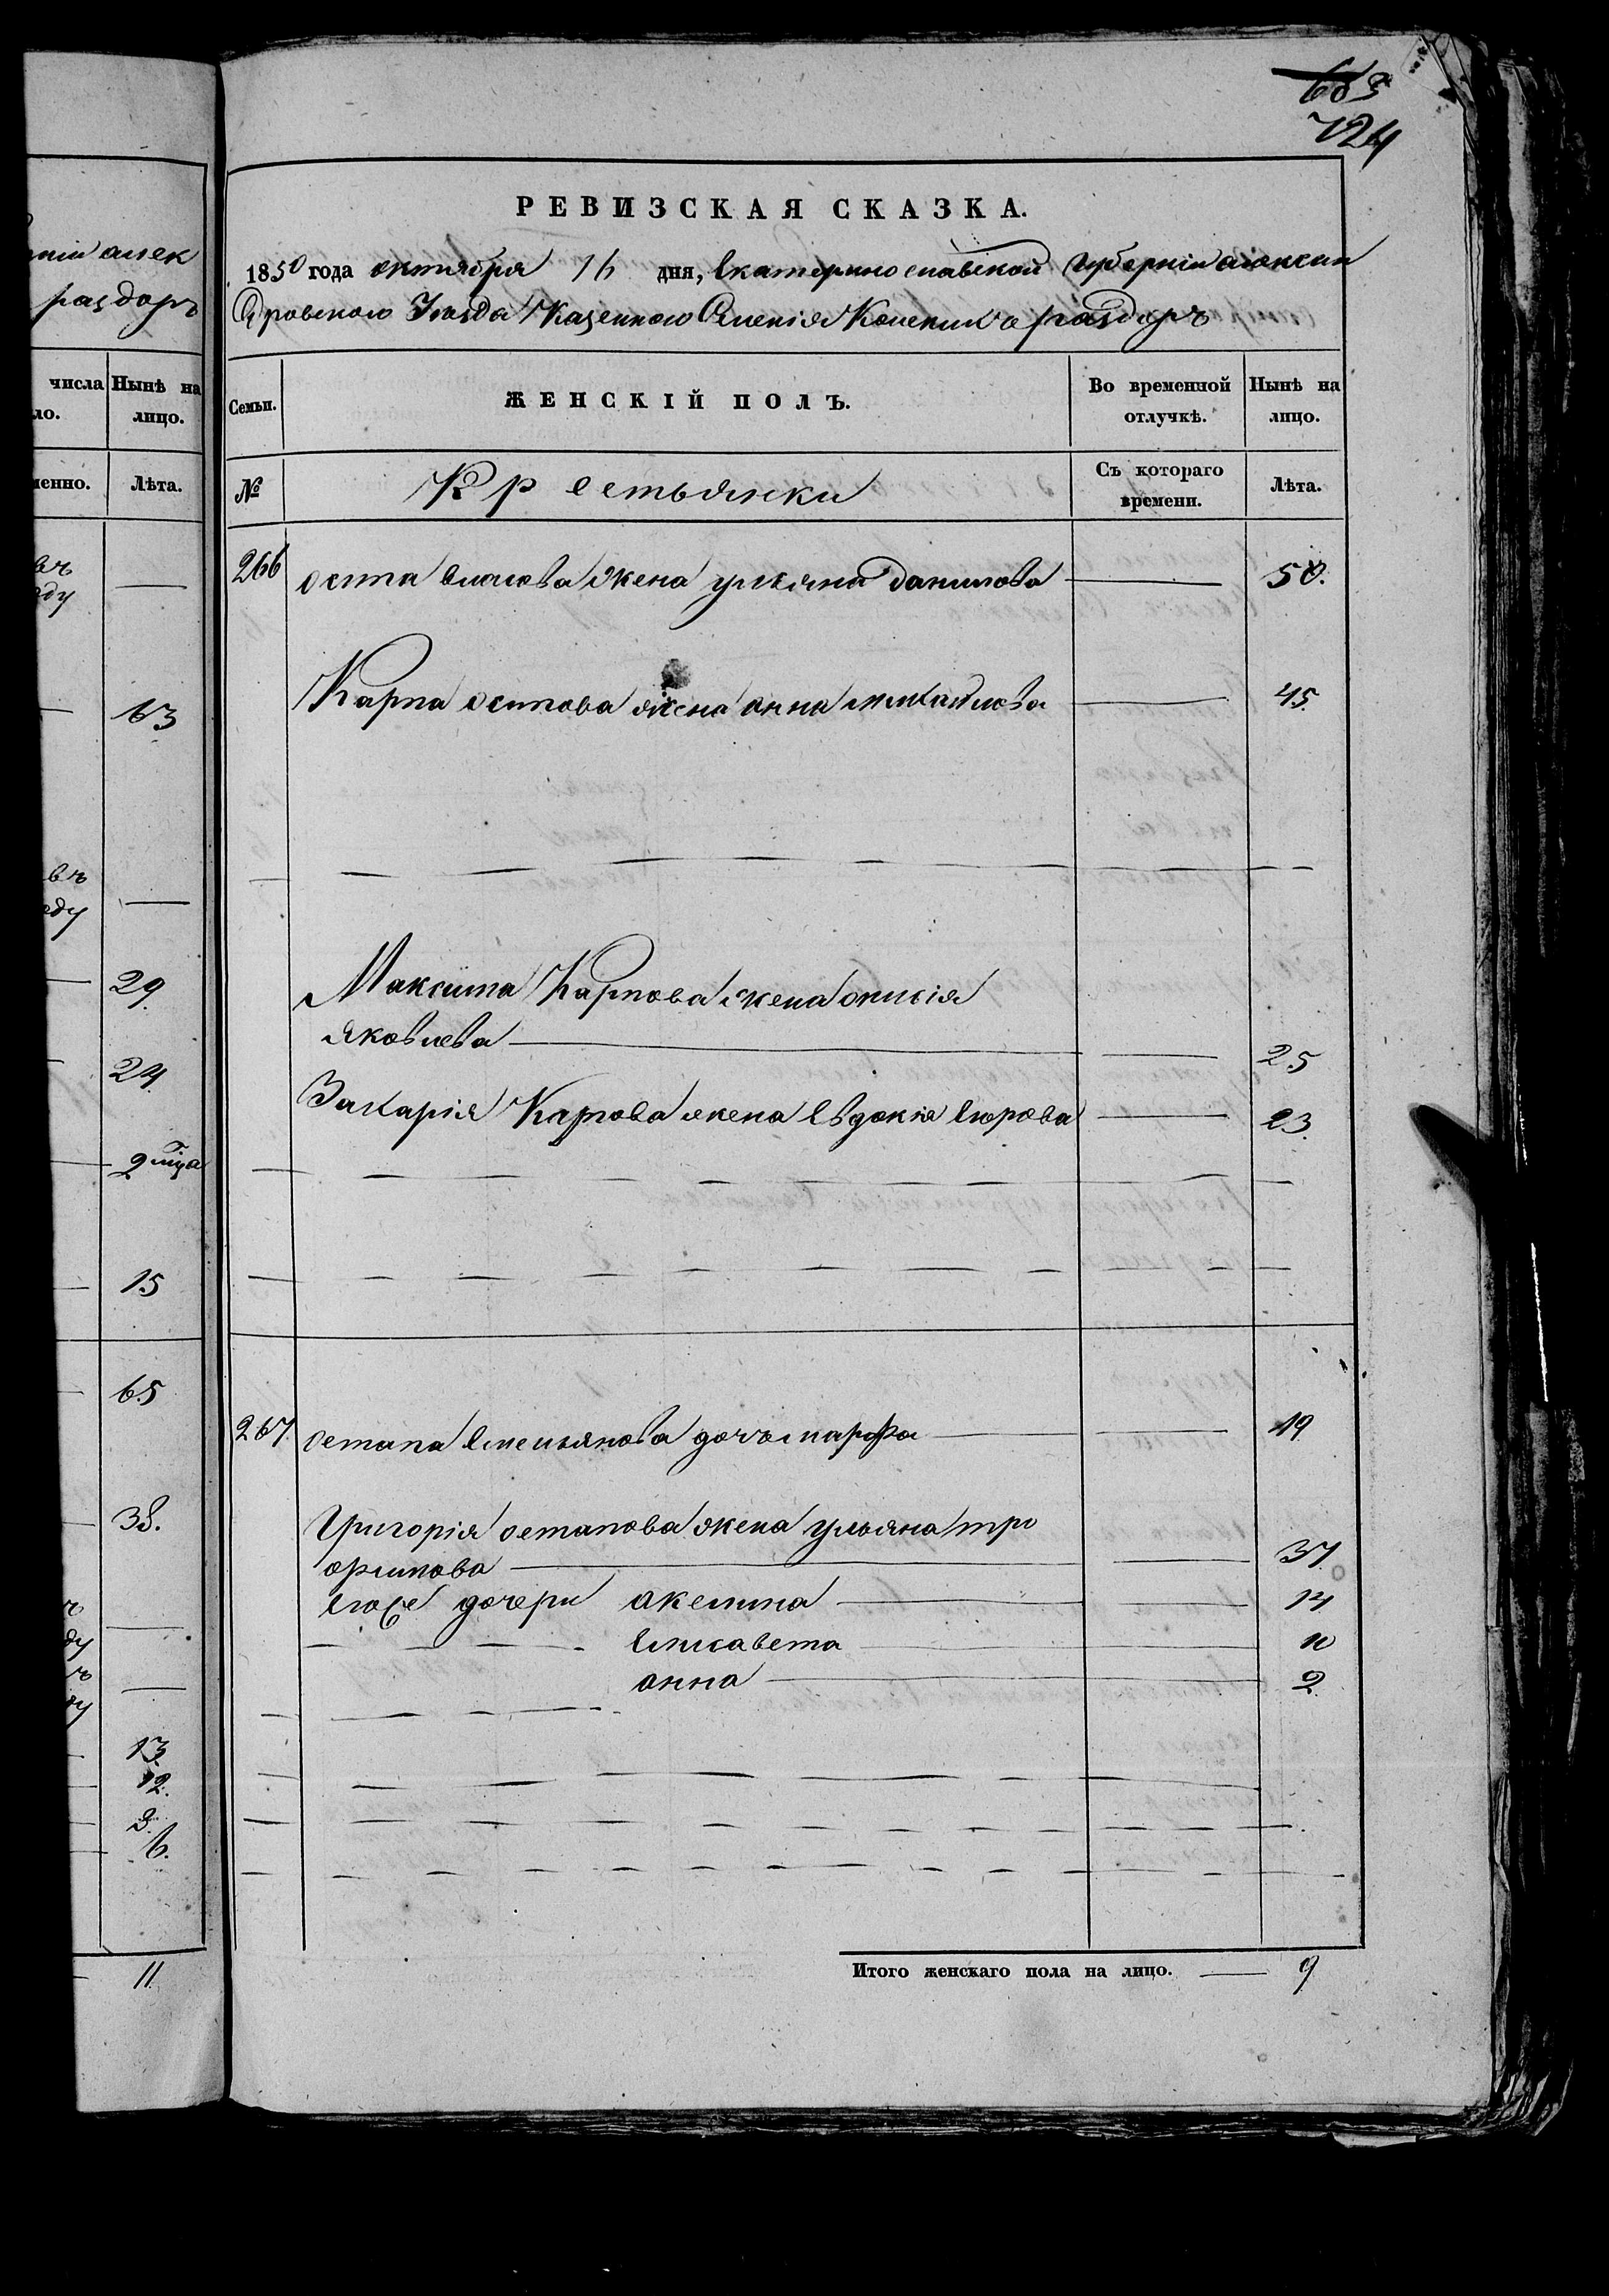 663
724
ній алек
раздоръ
числа
ло.
Нынѣ на
лицо.
менно.
Лѣта.
въ
оду
63
въ
оду
29.
24.
2 мца
15
65
38.
ду
ду
13.
12.
3.
6.
11.
РЕВИЗСКАЯ СКАЗКА.
1850 года октября 16 дня, Екатеринославской Губерніи алексан
дровского Уезда Казенного Селенія Конскихъ раздоръ
Семьи.
ЖЕНСКІЙ ПОЛЪ.
Во временной
отлучкѣ.
Нынѣ на
лицо.
№
Крестьянки
Съ котораго
времени.
Лѣта.
266 осипа власова жена ульяна данилова 50.
Карпа осипова жена анна михайлова 45.
Максима Карпова жена онисія
яковлева 25
Захарія Карпова жена Евдокія Егорова 23.
267. остапа Емельянова дочь марфа 19
Григорія остапова жена ульяна тро
фимова 37.
Его же дочери акелина 14
Елисавета 10
анна 2.
Итого женскаго пола на лицо. 9